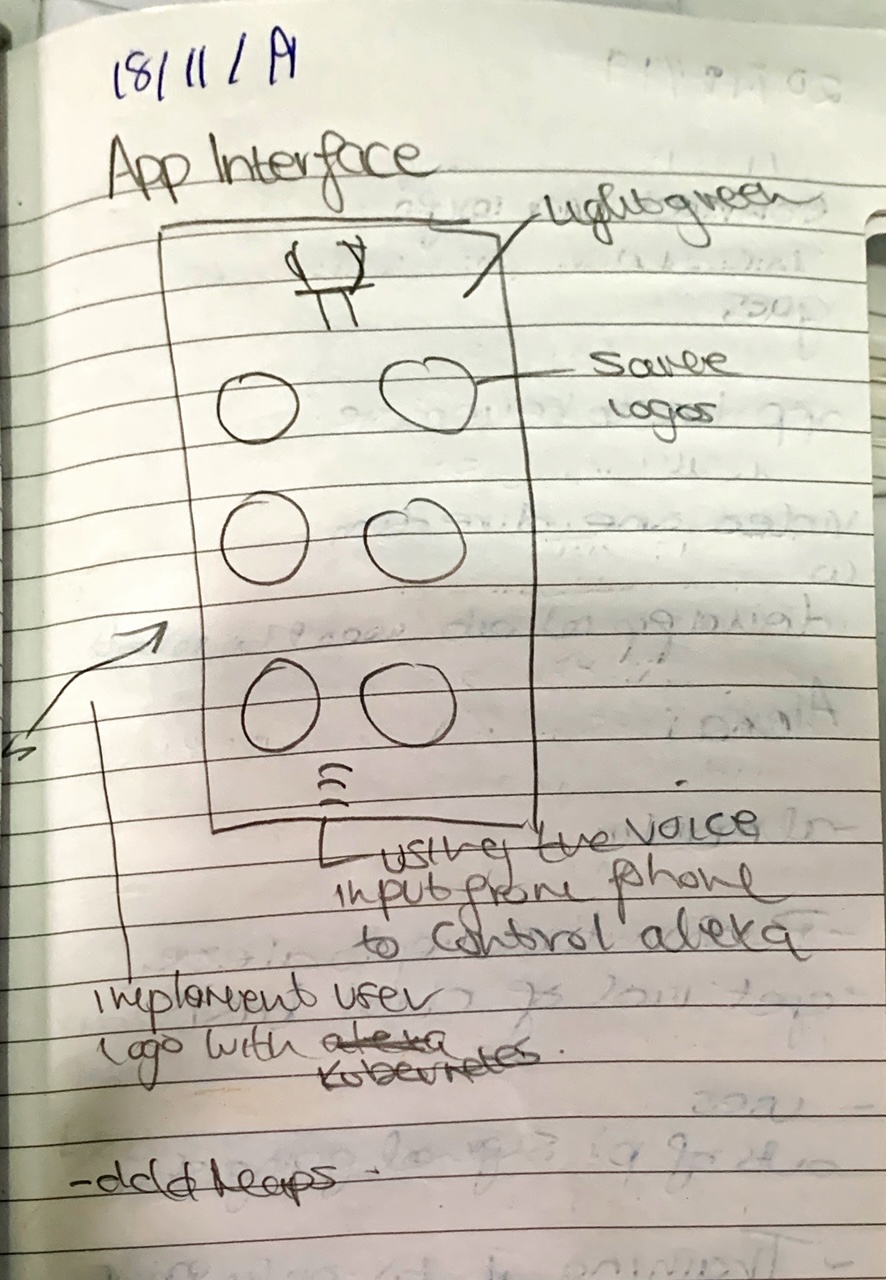 18/11/19
App Interface
light green
Savee
logos
using the voice
input from phone
to control alexa
implement user
logo with alexa
kubernetes.
-add